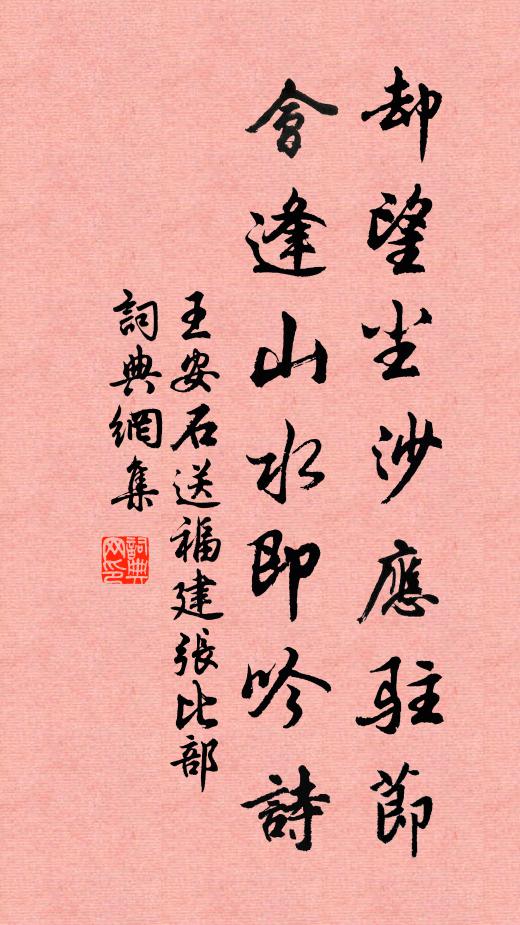 却望尘沙應駐節
會逢山水即吟詩
王安石送福建張比部
詞典網集
詞典网印